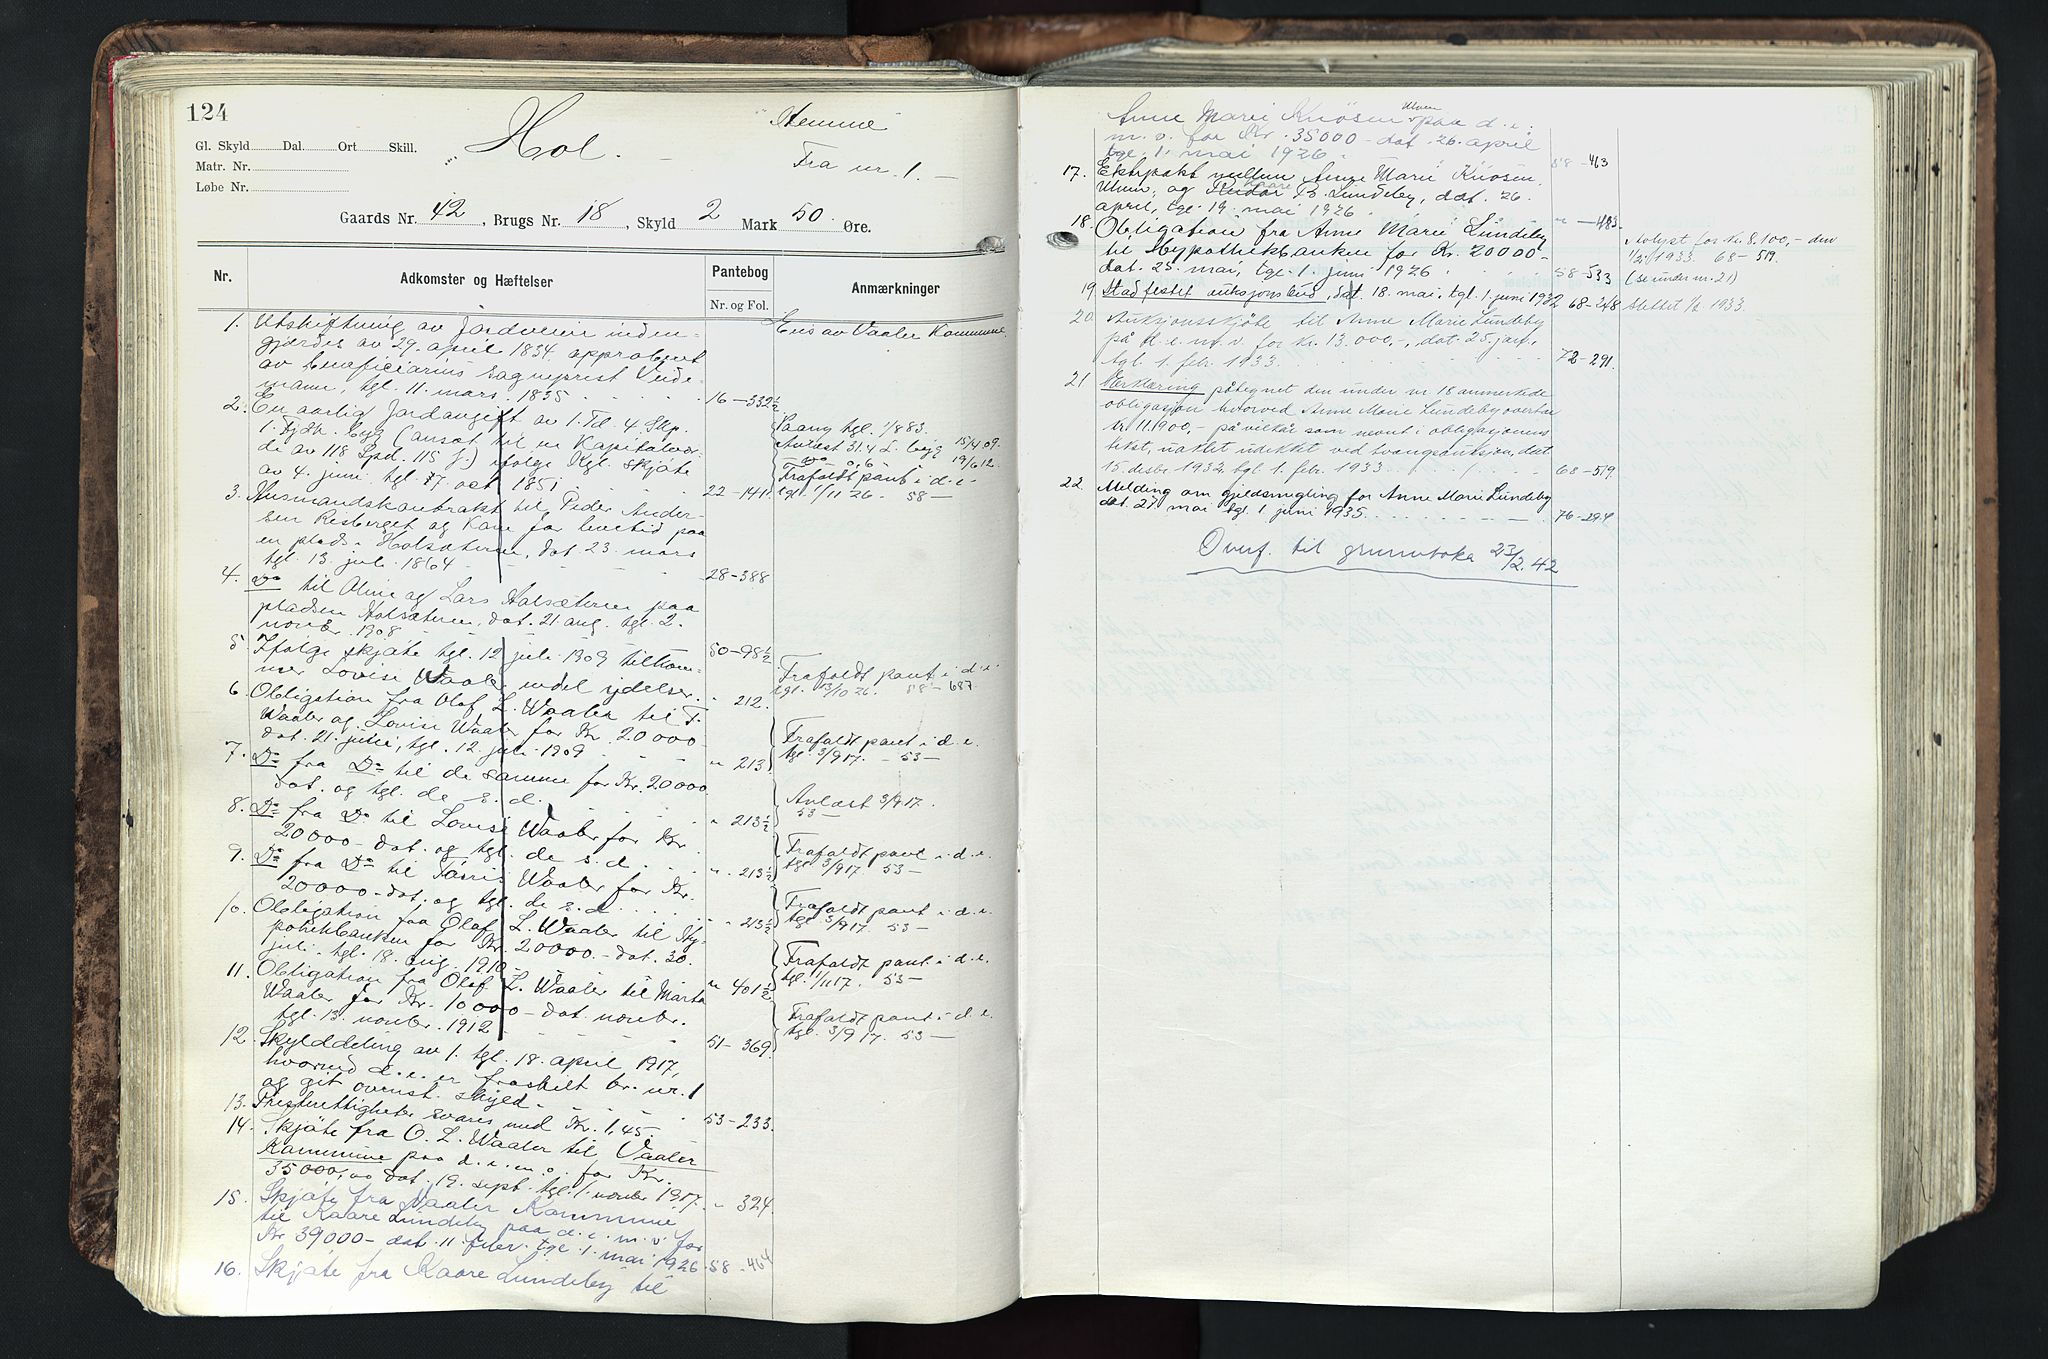 124
"Hemme"
Gl. Skyld Dal. Ort Skill.
" Hol. -
Matr. Nr.
Fra nr. 1. -
Løbe Nr.
Gaards Nr. 42, Brugs Nr. 18, Skyld 2 Mark 50. Øre.
Nr. Adkomster og Hæftelser Pantebog Anmærkninger
Nr. og Fol.
1. Utskiftning av Jordveien inden-
gjærdes av 29. april 1834. approberet
av beneficiarius sogneprest
mann, tgl. 11. mars. 1835 16-332½
Eies av Vaaler Kommune.
2. En aarlig Jordavgift av 1. Td. 4. Skp.
1. Fjdk. byg (ansat til en Kapitalvær-
di av 118 Spd. 115 ſ.) ifølge Kgl. skjøte
av 4. juni, tgl. 17 oct 1851. 22-141
Paaang tgl. 1/8 83.
31.4 L. byg 15/4 09.
0,6 19/6 12.
Frafaldt pant i d. e.
tgl. 1/11 26. 58-
3. Husmandskontrakt til Peder Ander-
sen Resberget og Kone for levetid paa
en plads i Holsæteren, dat. 23. mars
tgl. 13. juli. 1864 28-388
4. Do til Oline og Lars Holsæteren paa
pladsen Holsæteren, dat. 21 aug. tgl. 2.
novbr. 1908 50-98½
5. Ifølge skjøte tgl. 12 juli 1909 tilkom-
mer Lovise Waaler endel ydelser. " 212.
Frafaldt pant i d. e.
tgl. 13/10 26. 58-687.
6. Obligation fra Olof L. Waaler til T.
Waaler og Lovise Waaler for Kr. 20000-
dat. 21. juni, tgl. 12. juli 1909 " 213
Frafaldt pant i d. e.
tgl. 3/9 17. - 53-
7. Do fra Do til de samme for Kr. 20000
dat. og tgl. de s. d. " 213½
Avlæst 3/9 17.
53-
8. Do fra Do til Lovise Waaler for Kr.
20000- dat. og tgl. de s. d. " 213½
Frafaldt pant i d. e.
tgl. 3/9 17. 53-
9. Do fra Do til Waaler for Kr.
20000- dat. og tgl. de s. d. " 213½
Frafaldt pant i d. e.
tgl 3/9 17. 53-
10. Obligation fra Olof L. Waaler til Hy-
pothekbanken for Kr. 20000.- dat. 30.
juli, tgl. 18. aug. 1910 " 401½
Frafaldt pant i d. e.
tgl. 1/11 17. 53-
11. Obligation fra Olof L. Waaler til Marta
Waaler for Kr. 10000- dat. novbr.
tgl. 13. novbr. 1912 51-369.
Frafaldt pant i d. e.
tgl. 3/9 17. 53-
12. Skylddeling av 1. tgl. 18. april 1917,
hvorved d. e. er fraskilt br. nr. 1
og git ovenst. skyld. 53-233.
13. Presterettigheter svares med Kr. 1,45.
14. Skjøte fra O. L. Waaler til Vaaler
Kommune paa d. e. m. v. for Kr.
35000,00 dat. 19. sept. tgl. 1. novbr 1917. " 324
15. Skjøte fra Vaaler Kommune
til Kaare Lundeby paa d. e. m. v. for
Kr 39000- dat. 11. febr. tgl. 1. mai 1926. 58-464
16. Skjøte fra Kaare Lundeby til
Anne Marie Knösen Ulven paa d. e.
m. v. for Kr. 35000- dat. 26. april
tgl. 1. mai 1926. 58-463
17. Ektepakt mellem Anne Marie Knösen
Ulven, og Kaare B. Lundeby, dat. 26.
april, tgl. 19. mai 1926. " -483.
18. Obligation fra Anne Marie Lundeby
til Hypothekbanken for Kr. 20000-
dat. 25. mai, tgl. 1. juni 1926 58-533
Avlyst for kr. 8.100,- den
1/2 1933. 68-519.
(se under nr. 21)
19. Stadfestet auksjonsbud, dat. 18. mai, tgl. 1. juni 1932 68-248
Slettet 1/2 1933.
20. Auksjonsskjøte til Anne Marie Lundeby
på d. e. m. v. for kr. 13.000,-, dat. 25. jan.,
tgl. 1. febr. 1933. 72-291.
21. Erklæring påtegnet den under nr 18 anmerkede
obligasjon hvorved Anne Marie Lundeby overtar
kr. 11.900,- på vilkår som nevnt i obligasjonens
tekst, uaktet utdekket ved tvangsauksjon, dat
15. desbr. 1932, tgl. 1. febr. 1933. 68-519.
22. Melding om gjeldsmegling for Anne Marie Lundeby
dat. 27. mai tgl. 1. juni 1935. 76-294
Overf. til grunnboka 23/2. 42